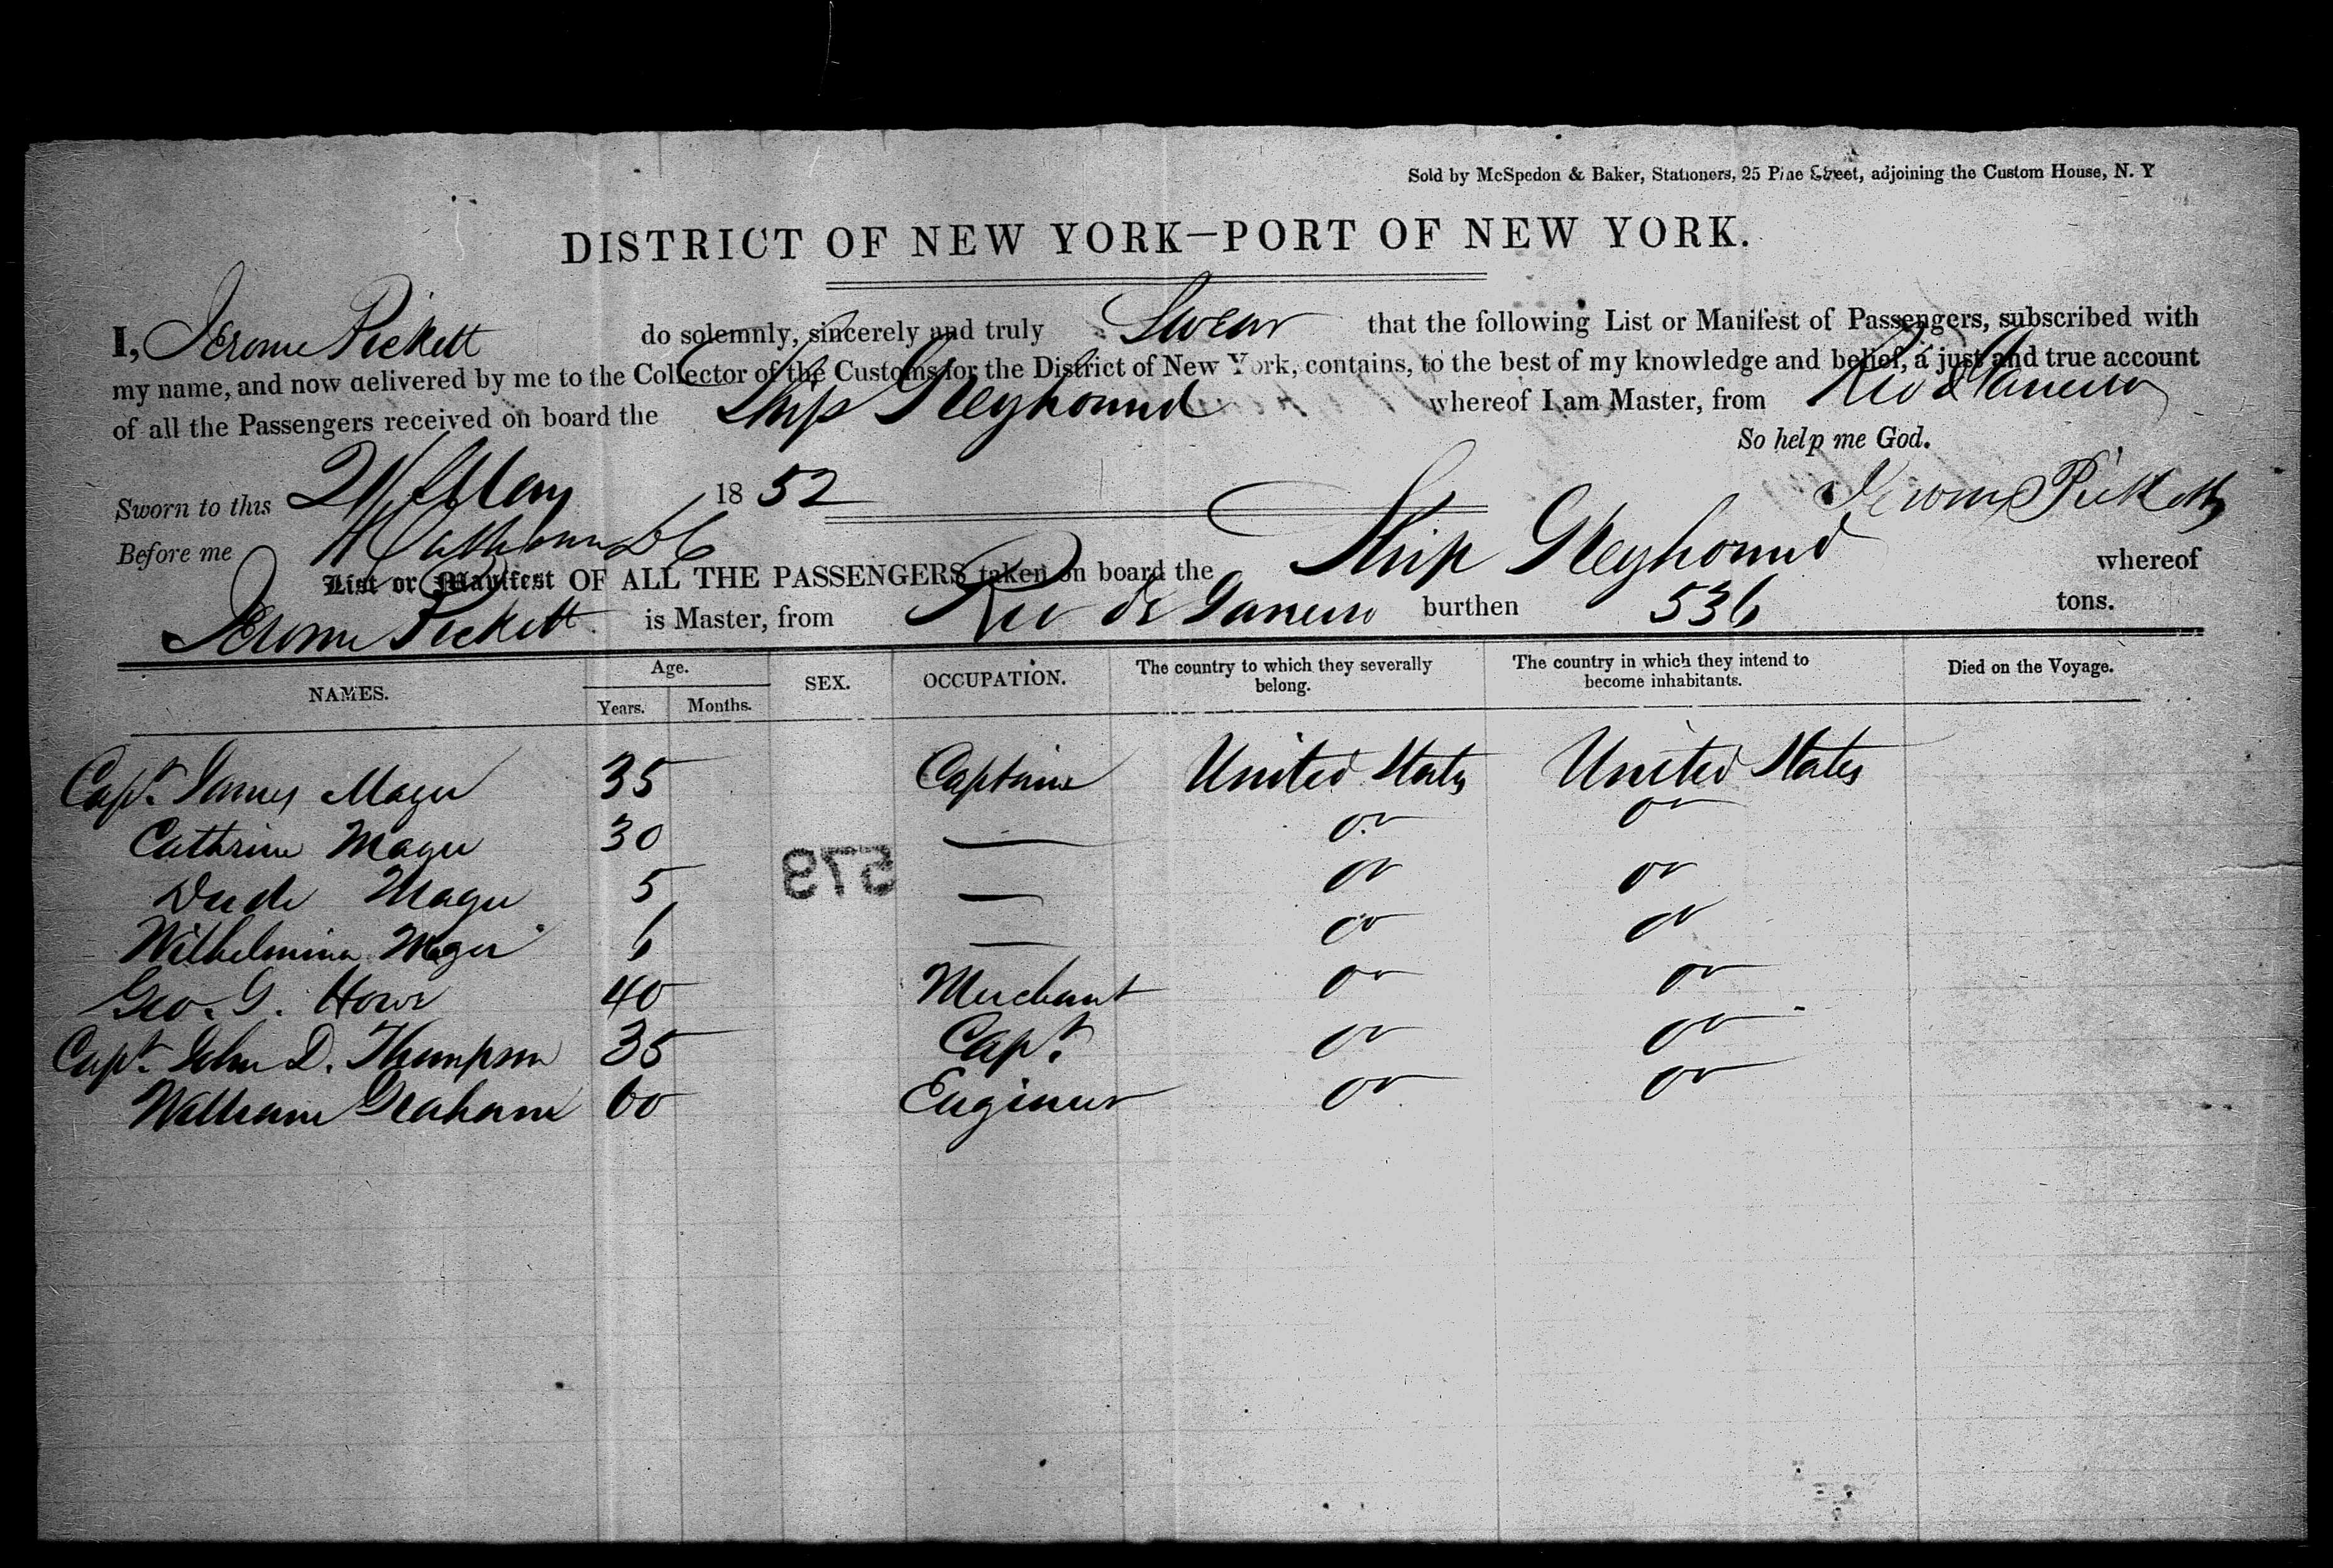 Sold by McSpedon & Baker, Stationers, 25 Pine Street, adjoining the Custom House, N. Y
DISTRICT OF NEW YORK—PORT OF NEW YORK.
I, Jerome Pickett do solemnly, sincerely and truly Swear that the following List or Manifest of Passengers, subscribed with
my name, and now delivered by me to the Collector of the Customs for the District of New York, contains, to the best of my knowledge and belief, a just and true account
of all the Passengers received on board the Ship Greyhound whereof I am Master, from Rio d Janeiro
So help me God.
Sworn to this 21 May 1852 Jerome Pickett
Before me
List or Manifest OF ALL THE PASSENGERS taken on board the Ship Greyhound whereof
Jerome Pickett is Master, from Rio de Janeiro burthen 536 tons.
NAMES. Age. Years. Months. SEX. OCCUPATION. The country to which they severally belong. The country in which they intend to become inhabitants. Died on the Voyage.
Capt. James Mager 35 Captain United States United States
Cathrine Mager 30 — do do
Mager 5 — do do
Wilhelmina Mager 6 — do do
Geo. G. Howe 40 Merchant do do
Capt. John D. Thompson 35 Capt. do do
William Graham 60 Engineer do do
578